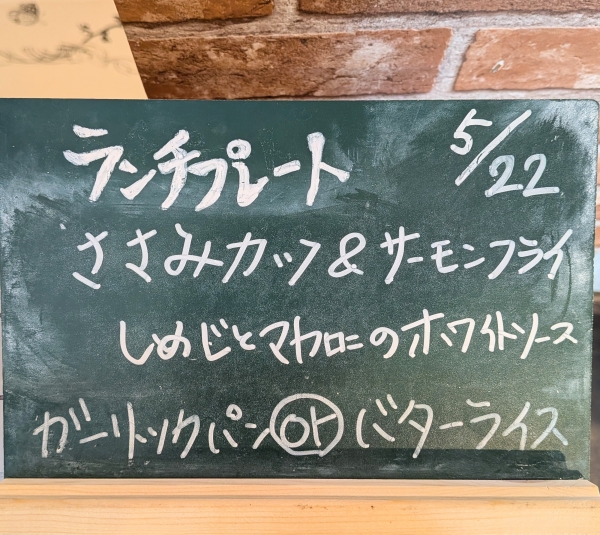 ランチプレート 5/22
ささみカツ&サーモンフライ
しめじとマカロニのホワイトソース
ガーリックパン or バターライス